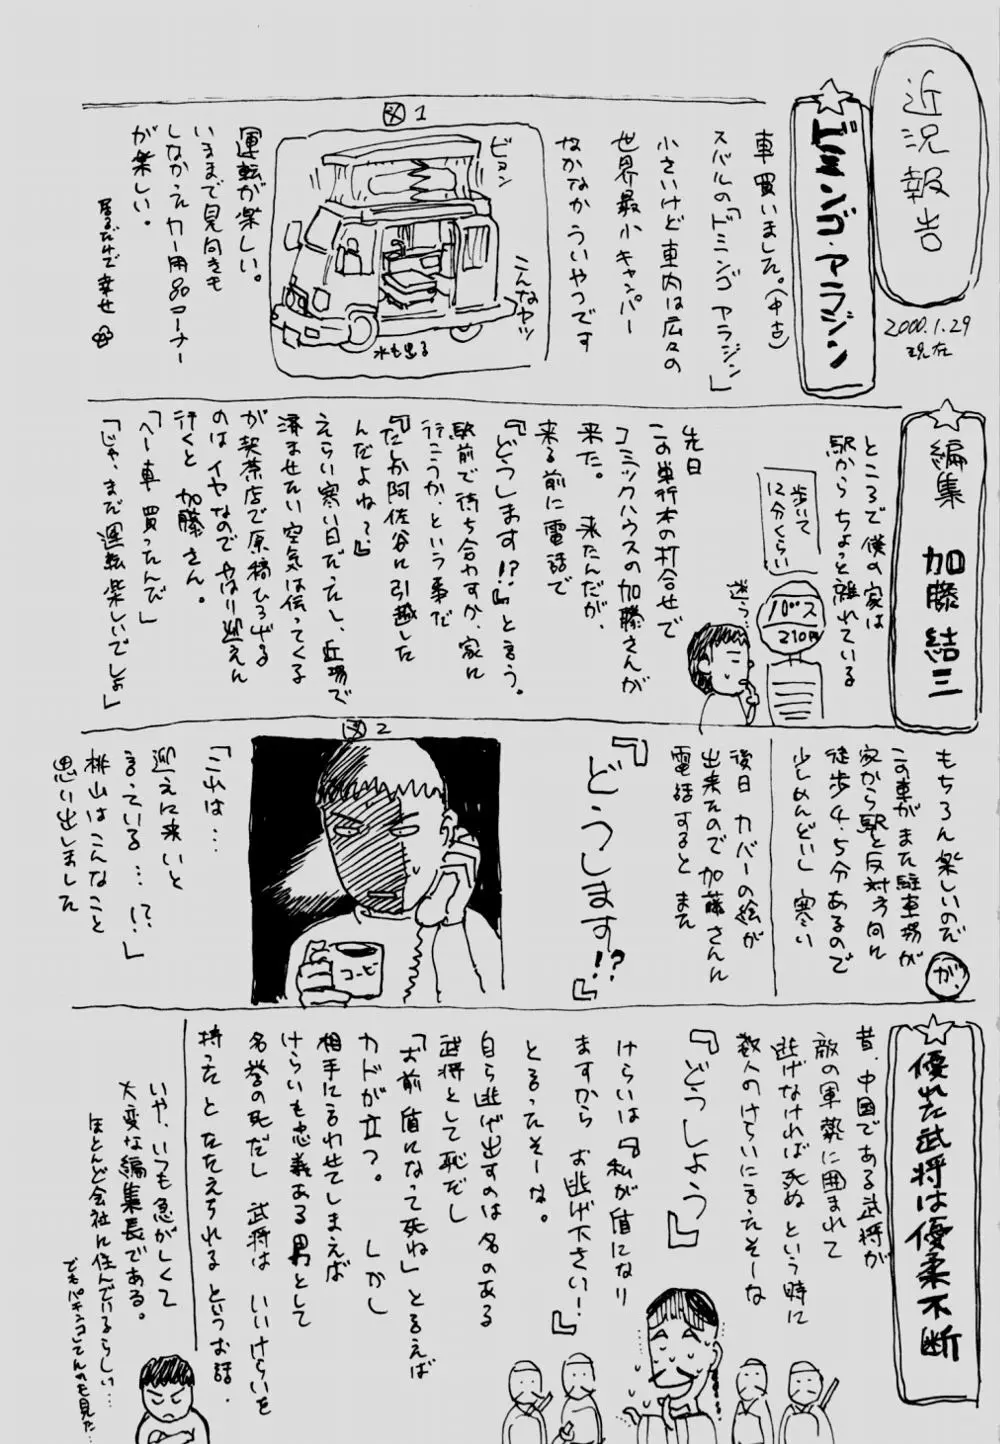 近況報告
2000.1.29
現在
ドミンゴ・アラジン
車買いました。(中古)
スバルの「ドミンゴ アラジン」
小さいけど車内は広々の
世界最小キャンパー
なかなかういやつです
図1
ビヨン
こんなヤツ
水も出る
運転が楽しい。
いままで見向きも
しなかったカー用品コーナー
が楽しい。
居るだけで幸せ
編集 加藤結三
ところで僕の家は
駅からちょっと離れている
歩いて
12分くらい
バス
210円
迷う…
先日
この単行本の打合せで
コミックハウスの加藤さんが
来た。来たんだが、
来る前に電話で
『どうします!?』と言う。
駅前で待ち合わすか、家に
行こうか、という事だ
『たしか阿佐谷に引越した
んだよね?』
えらい寒い日だったし、近場で
済ませたい空気は伝ってくる
が喫茶店で原稿ひろげる
のはイヤなのでやはり迎えに
行くと 加藤さん。
「へー車買ったんだ」
「じゃ、まだ運転楽しいでしょ」
もちろん楽しいのだ
が、
この車がまた駐車場が
家から駅と反対方向に
徒歩4.5分あるので
少しめんどいし 寒い
後日 カバーの絵が
出来たので加藤さんに
電話すると また
『どうします!?』
図2
コーヒ
「これは…
迎えに来いと
言っている…!?」
桃山はこんなこと
思い出しました
優れた武将は優柔不断
昔、中国である武将が
敵の軍勢に囲まれて
逃げなければ死ぬ という時に
数人のけらいに言えそーな
『どうしよう』
けらいは『私が盾になり
ますから お逃げ下さい!』
とるったそーな。
自ら逃げ出すのは名のある
武将として恥だし
「お前盾になって死ね」と言えば
カドが立つ。しかし
相手に言わせてしまえば
けらいも忠義ある男として
名誉の死だし 武将は いいけらいを
持ったと たたえられる というお話.
いや、いつも急がしくて
大変な編集長である。
ほとんど会社に住んでいるらしい…
でもパチンコしてんのも見た…